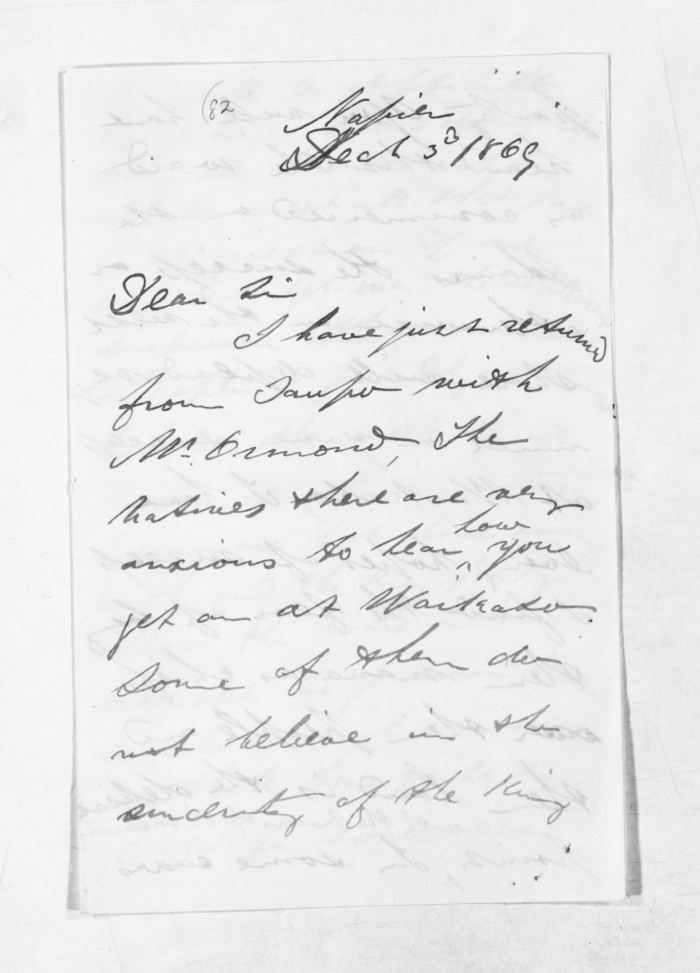 (82
Napier
Dech 3d/1869
Dear Sir
I have just returned
from Taupo with
Mr. Ormond, The
natives there are very
anxious to hear how you
get on at Waikato.
Some of them do
not believe in the
sincerity of the King